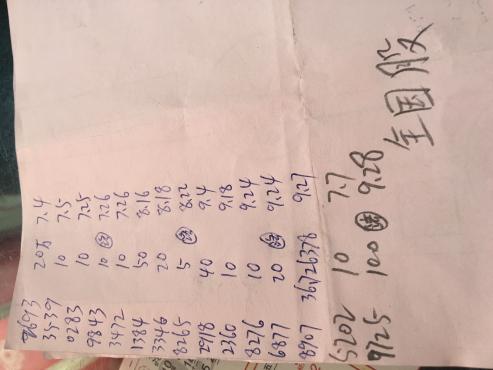 全国股
9693 20万 7.4
3539 10 7.5
0283 10 7.25
9843 10 7.26
3472 10 7.26
1384 50 8.16
3346 20 8.18
8265 5 8.22
2918 40 9.4
2360 10 9.18
8276 10 9.24
6877 20 9.24
8907 36726378 9.27
5202 10 7.7
9725 100 9.28